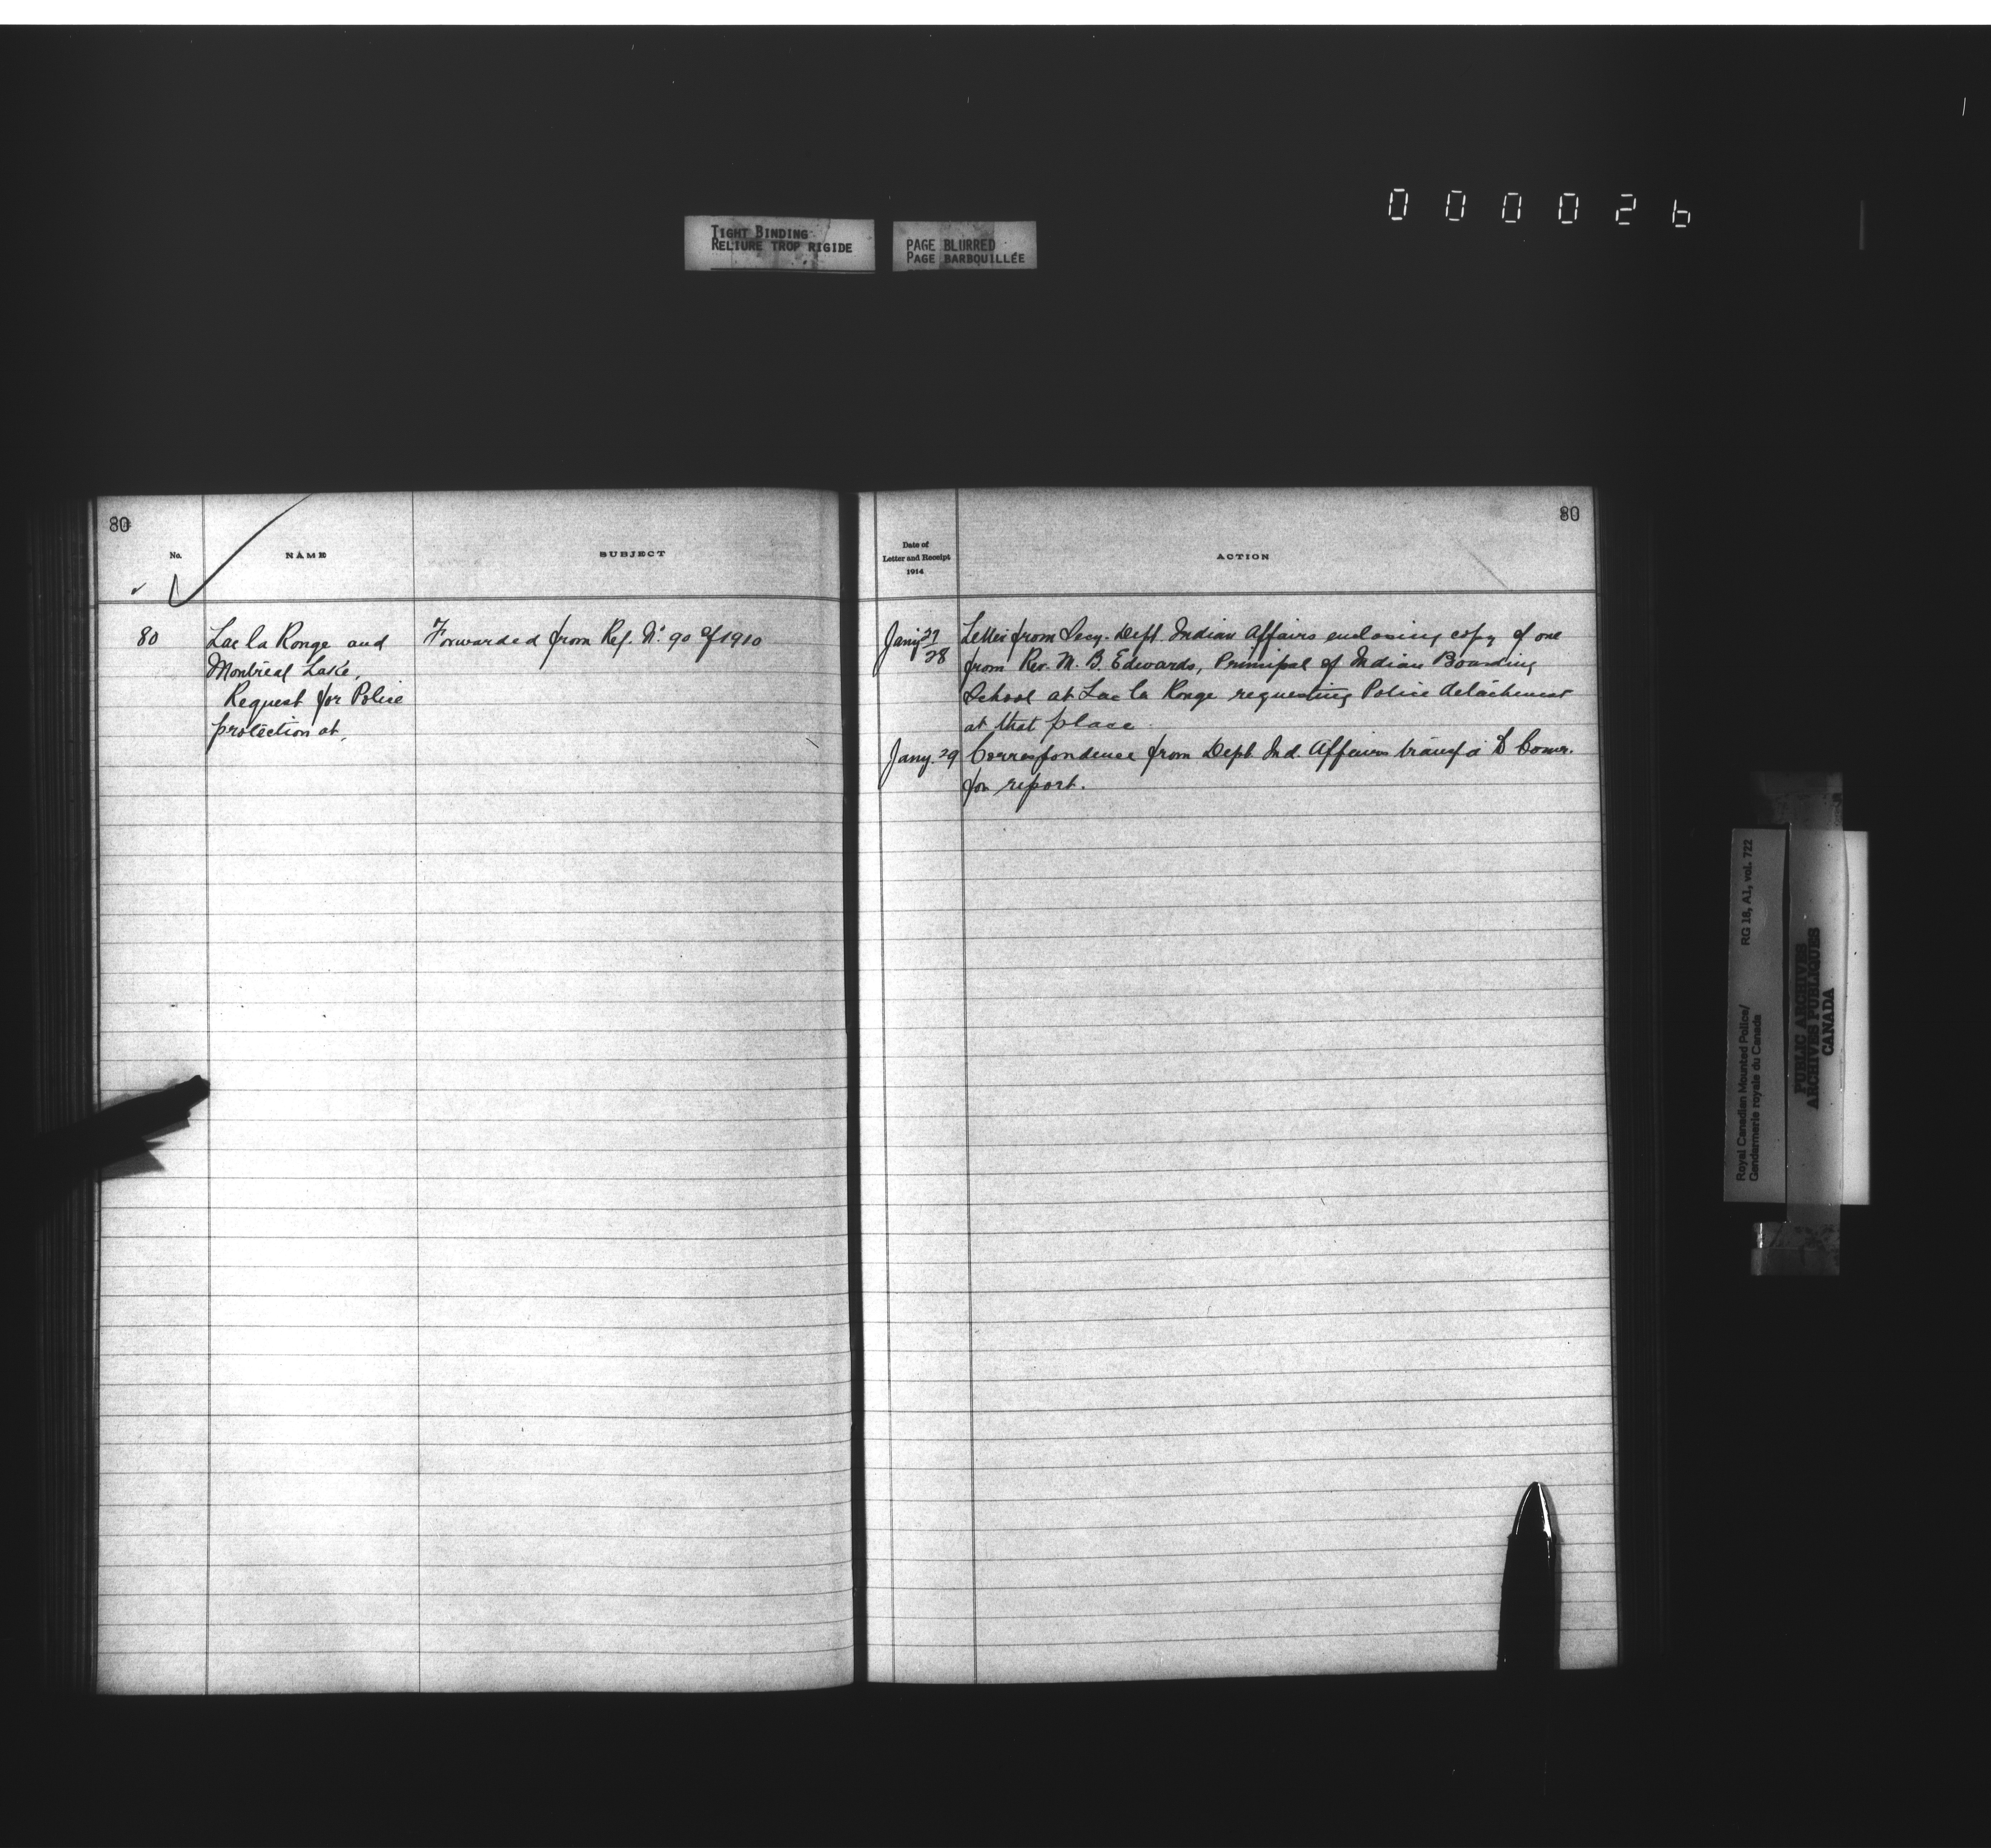 000026
TIGHT BINDING
RELIURE TROP RIGIDE
PAGE BLURRED
PAGE BARBOUILLÉE
80
No.
NAME
SUBJECT
80 Lac la Ronge and
Montreal Lake,
Request for Police
protection at.
Forwarded from Ref. No. 90 of 1910
80
Date of
Letter and Receipt
1914
ACTION
Jany 27/28 Letter from Secy. Dept. Indian Affairs enclosing copy of one
from Rev. M. B. Edwards, Principal of Indian Boarding
School at Lac la Ronge requesting Police detachment
at that place.
Jany. 29 Correspondence from Dept. Ind. Affairs to Comr.
for report.
Royal Canadian Mounted Police/ RG 18, A1, vol. 722
Gendarmerie royale du Canada
PUBLIC ARCHIVES
ARCHIVES PUBLIQUES
CANADA